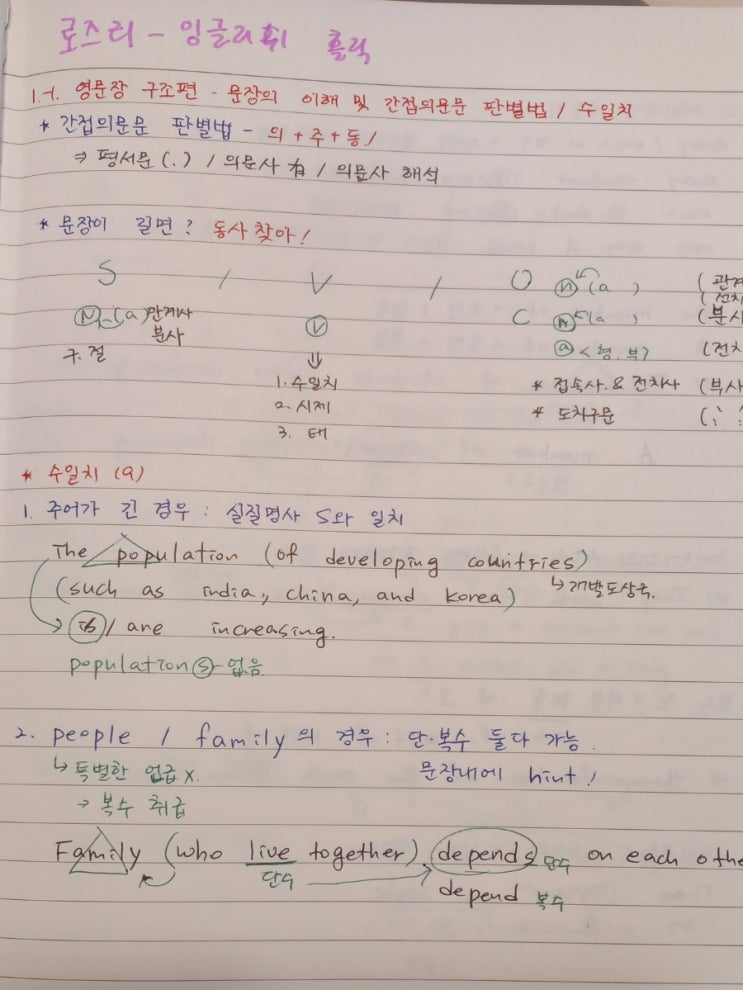 로즈리 - 잉글리쉬 홀릭
1.-1. 영문장 구조편 - 문장의 이해 및 간접의문문 판별법 / 수일치
* 간접의문문 판별법 - 의 + 주 + 동 /
⇒ 평서문 (.) / 의문사 有 / 의문사 해석
* 문장이 길면? 동사 찾아!
S / V / O ⓝ (a ) (관계
(전치
ⓝ (a) 관계사 ⓥ C ⓝ (a ) (분사
분사
구. 절 ⇓ ⓐ <형. 부> (전치
1. 수일치 * 접속사. & 전치사 (부사
2. 시제 * 도치구문 (
3. 태
* 수일치 (9)
1. 주어가 긴 경우 : 실질명사 S와 일치
The population (of developing countries)
(such as india, china, and korea) ↳ 개발도상국.
is / are increasing.
population ⓢ 없음
2. people / family의 경우 : 단·복수 둘다 가능.
↳ 특별한 언급 X. 문장내에 hint!
→ 복수 취급
Family (who live together) depends 단수 on each othe
단수 depend 복수